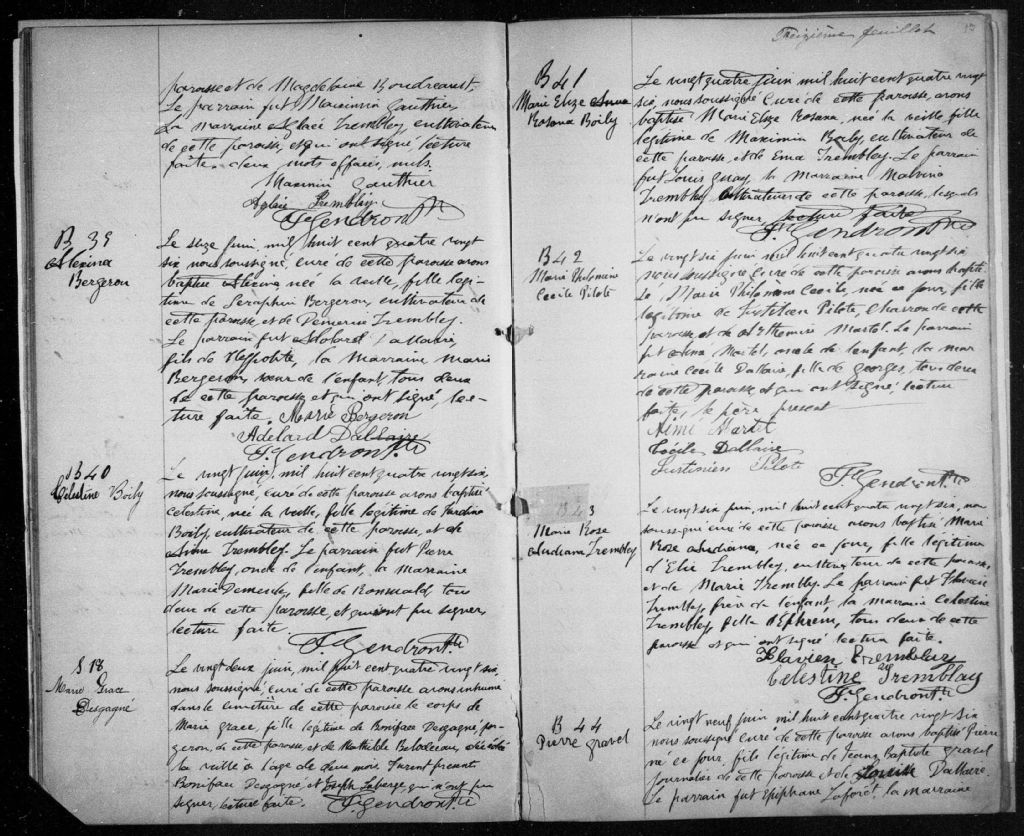 paroisse et de Magdeleine Boudreault.
Le parrain fut Maximin Gauthier
La marraine Aglaé Tremblay, cultivateur
de cette paroisse, et qui ont signé, lecture
faite. deux mots effacés, nuls
Maximin Gauthier
Aglaée Tremblay
Fs Gendron Ptr
B 39
Alexina
Bergeron
Le seize juin, mil huit cent quatre vingt
six nous soussigné, curé de cette paroisse avons
baptisé Alexina née la veille, fille légi-
time de Séraphin Bergeron, cultivateur de
cette paroisse, et de Demerise Tremblay.
Le parrain fut Adelard Dallaire,
fils de Hyppolite, la Marraine Marie
Bergeron, sœur de l'enfant, tous deux
de cette paroisse et qui ont signé, lec-
ture faite. Marie Bergeron
Adelard Dallaire
Fs Gendron Ptr
B 40
Celestine Boily
Le vingt juin, mil huit cent quatre vingt six,
nous soussigné, curé de cette paroisse avons baptisé
Celestine, née la veille, fille légitime de
Boily, cultivateur de cette paroisse, et de
Tremblay. Le parrain fut Pierre
Tremblay, oncle de l'enfant, la marraine
Marie Demeules, fille de Romuald tous
deux de cette paroisse, et qui n'ont pu signer,
lecture faite.
Fs Gendron Ptr
S 18
Marie Grace
Desgagné
Le vingt deux juin, mil huit cent quatre vingt six,
nous soussigné, curé de cette paroisse avons inhumé
dans le cimetière de cette paroisse le corps de
Marie Grace, fille légitime de Boniface Desgagné, for-
geron, de cette paroisse, et de Mathilde Bilodeau, décédée
la veille à l'age de deux mois. Furent présents
Boniface Desgagné, et Joseph Laberge, qui n'ont pu
signer, lecture faite. Fs Gendron Ptr
Treizième feuillet 13
B 41
Marie Elize Anna
Rosana Boily
Le vingt quatre juin mil huit cent quatre vingt
six, nous soussigné Curé de cette paroisse, avons
baptisé Marie Elize Rosana, née la veille fille
légitime de Maximin Boily, cultivateur de
cette paroisse, et de Ema Tremblay. Le parrain
fut Louis Guay, la Marraine Malvina
Tremblay cultivateurs de cette paroisse, lesquels
n'ont pu signer, lecture faite
Fs Gendron Ptr
B 42
Marie Philomène
Cecile Pilote
Le vingt six juin mil huit cent quatre vingt six
nous soussigné Curé de cette paroisse avons bapti-
sé, Marie Philomène Cecile, née ce jour, fille
légitime de Pilote, Charron de cette
paroisse et de Martel. Le parrain
fut Martel, oncle de l'enfant, la mar
raine Cecile Dallaire, fille de Georges, tous deux
de cette paroisse, et qui ont signé, lecture
faite, le père présent
Aimé Martel
Cécile Dallaire
Justinien Pilote
Fs Gendron Ptr
B 43
Marie Rose
Andiana Tremblay
Le vingt six juin, mil huit cent quatre vingt six, nous
soussigné curé de cette paroisse avons baptisé Marie
Rose Andiana, née ce jour, fille légitime
d'Elie Tremblay, cultivateur de cette paroisse,
et de Marie Tremblay. Le parrain fut Flavien
Tremblay, frère de l'enfant, la marraine Celestine
Tremblay, fille d'Ephrem, tous deux de cette
paroisse et qui ont signé lecture faite.
Flavien Tremblay
Célestine Tremblay
Fs Gendron Ptr
B 44
Pierre Gravel
Le vingt neuf juin mil huit cent quatre vingt six
nous soussigné curé de cette paroisse avons baptisé Pierre
né ce jour, fils légitime de Jean Baptiste Gravel
journalier de cette paroisse et de Louise Dallaire.
Le parrain fut Epiphane Laforêt, la marraine